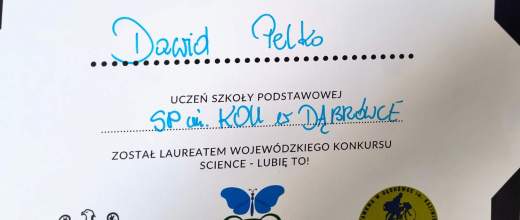 Dawid Pelko
UCZEŃ SZKOŁY PODSTAWOWEJ
SP im. KOU w DĄBRÓWCE
ZOSTAŁ LAUREATEM WOJEWÓDZKIEGO KONKURSU
SCIENCE - LUBIĘ TO!